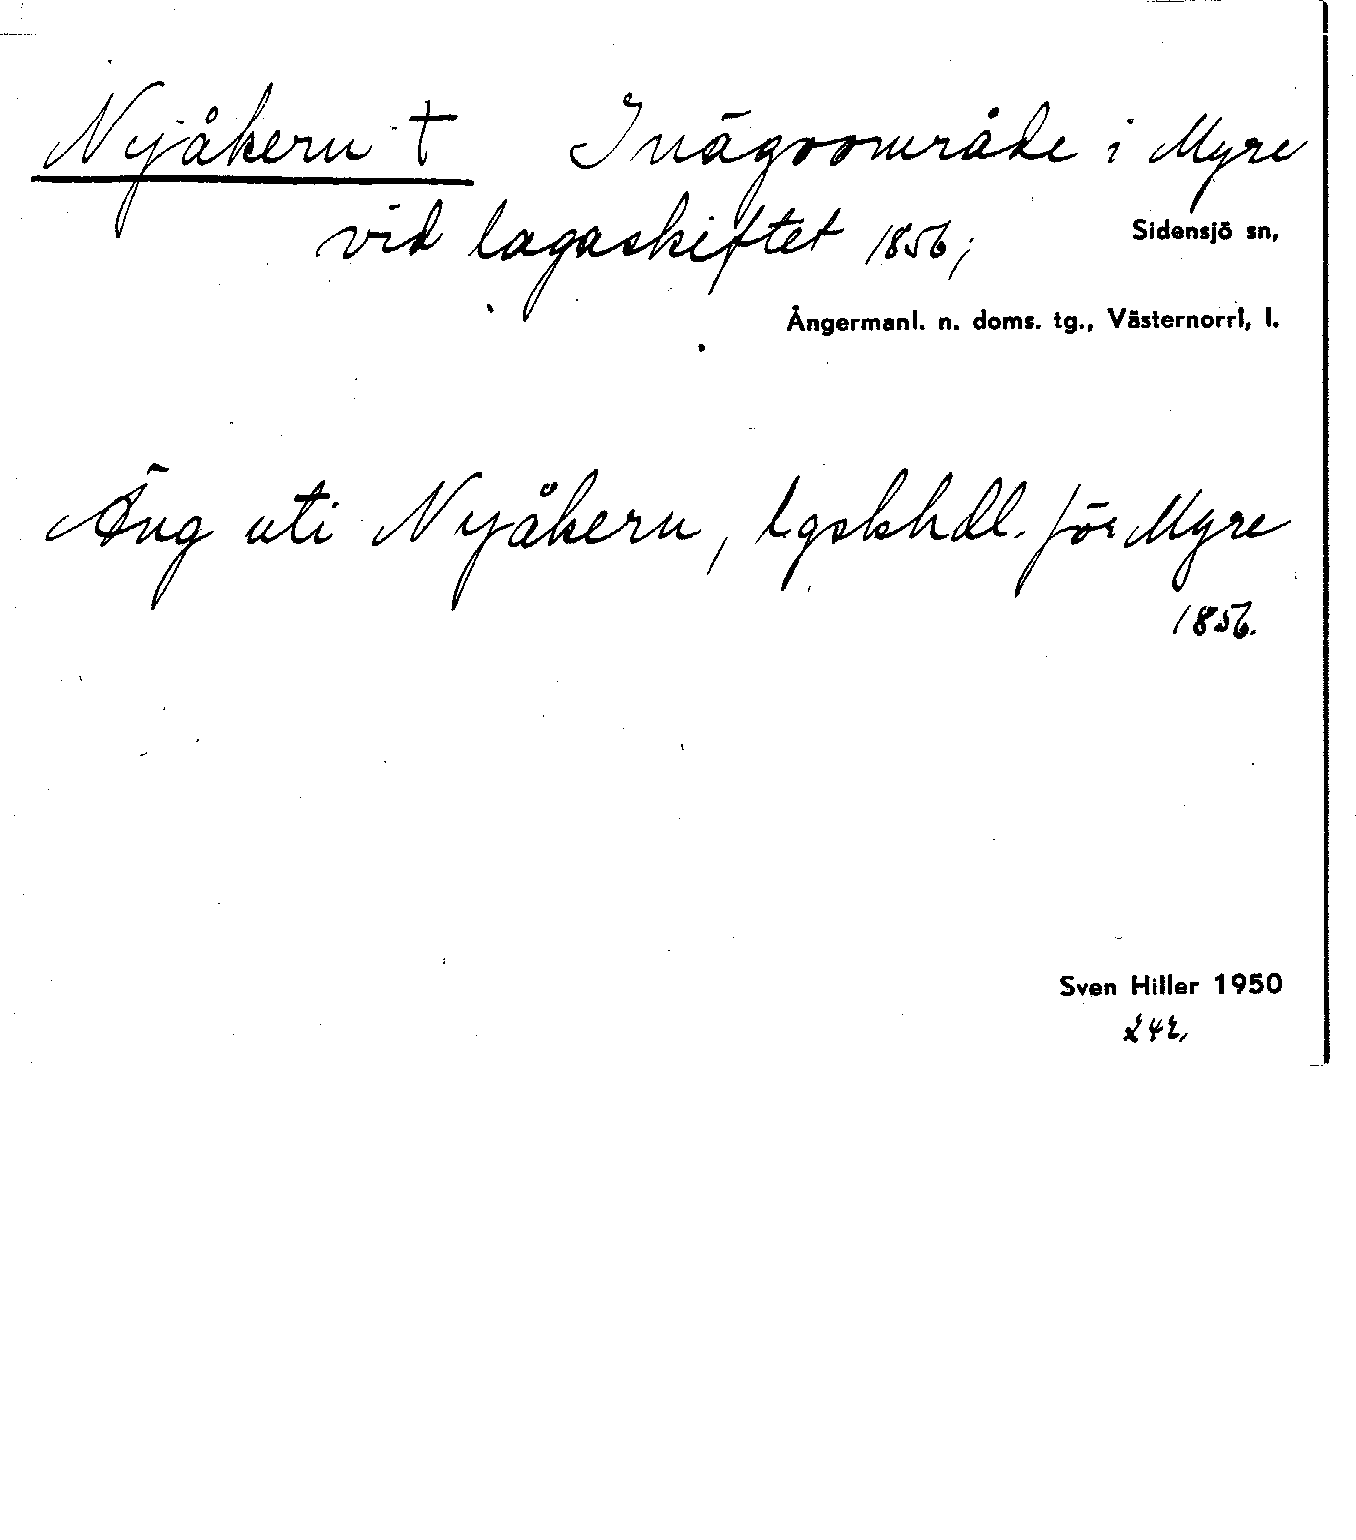 Nyåkern † Inägoområde i Myre
vid lagaskiftet 1856;
Sidensjö sn,
Ångermanl. n. doms. tg., Västernorrl, l.
Äng uti Nyåkern, Lgskhdl. för Myre
1856.
Sven Hiller 1950
242.